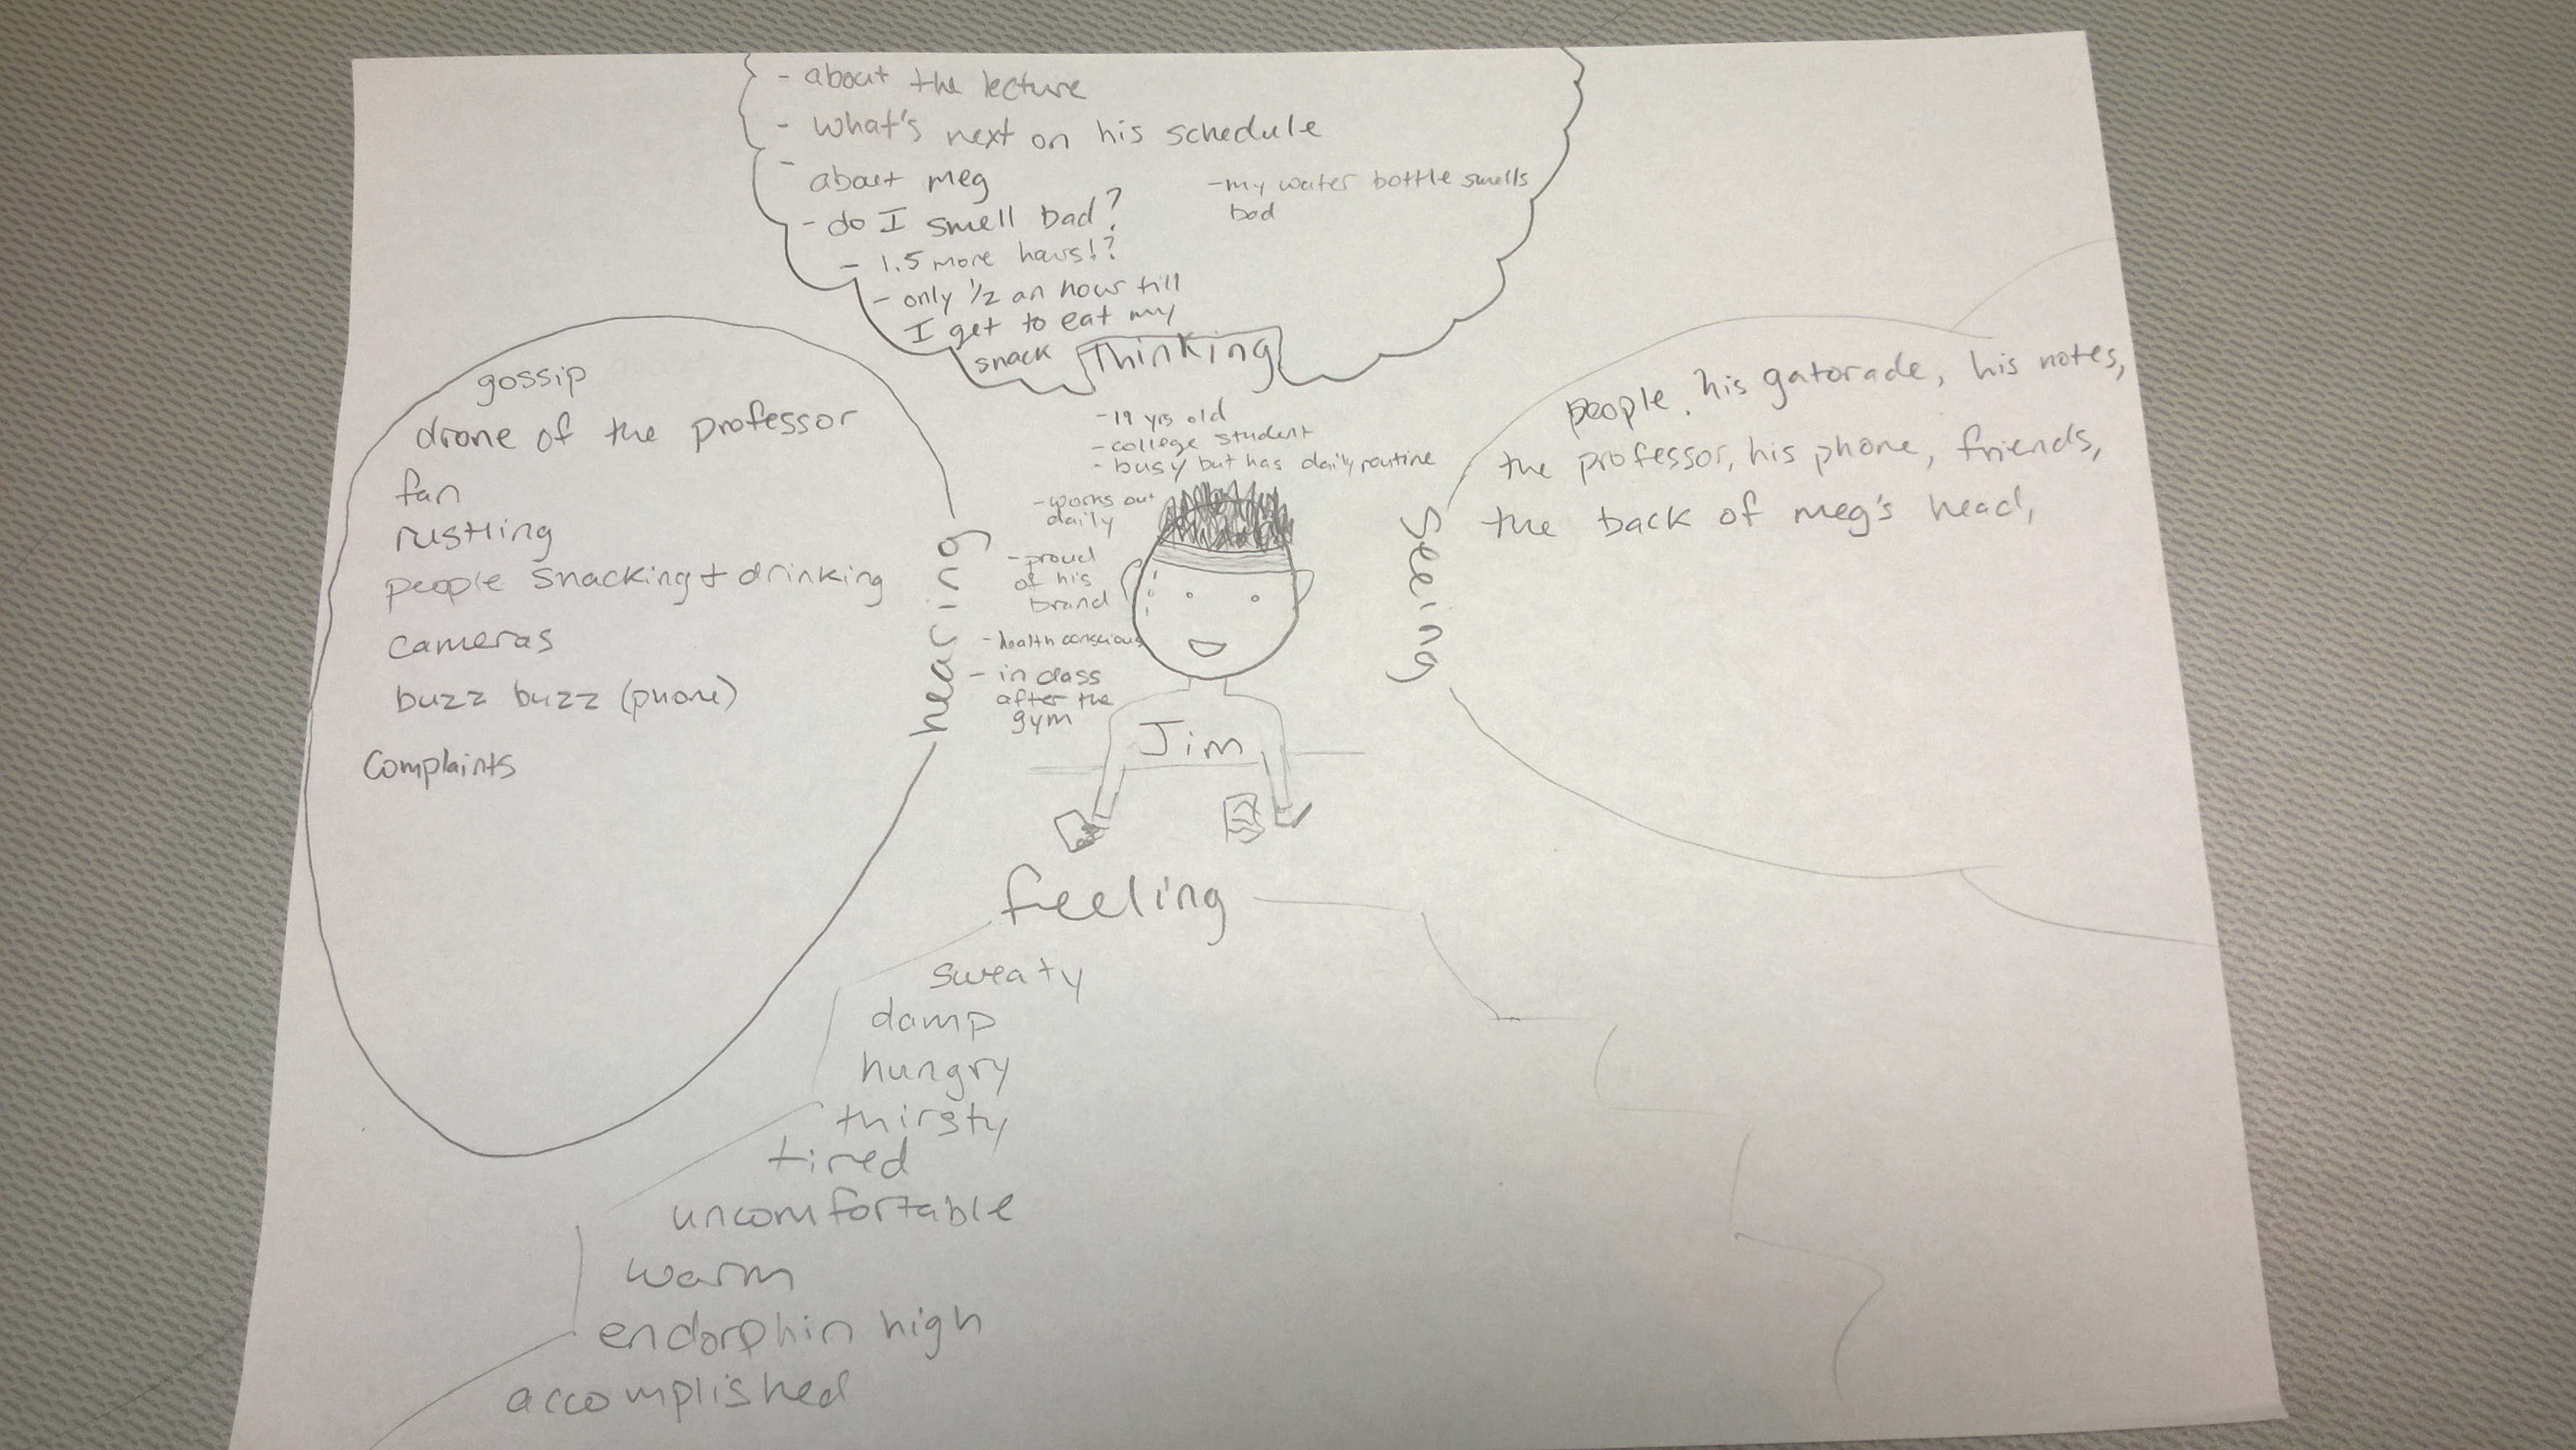 - about the lecture
- what's next on his schedule
- about meg
- my water bottle smells
bad
- do I smell bad?
- 1.5 more hours!?
- only 1/2 an hour till
I get to eat my
snack
Thinking
gossip
drone of the professor
fan
rustling
people snacking + drinking
cameras
buzz buzz (phone)
Complaints
hearing
- 19 yrs old
- college student
- busy but has daily routine
- works out
daily
- proud
of his
brand
- health conscious
- in class
after the
gym
Jim
seeing
people, his gatorade, his notes,
the professor, his phone, friends,
the back of meg's head,
feeling
sweaty
damp
hungry
thirsty
tired
uncomfortable
warm
endorphin high
accomplished